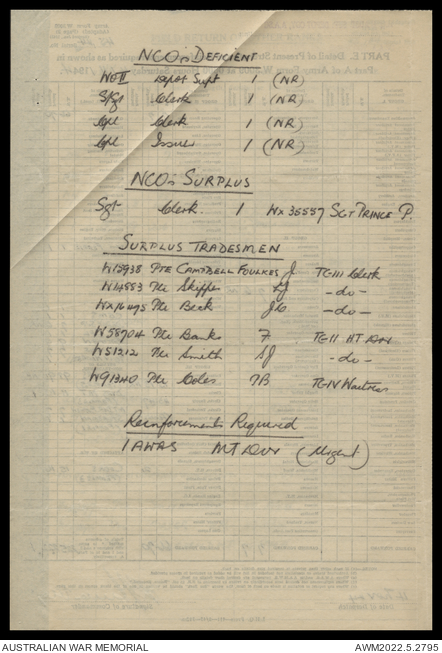 NCOs DEFICIENT
WOII Depot Supt 1 (NR)
S/Sgt Clerk 1 (NR)
Cpl Clerk 1 (NR)
Cpl Issuer 1 (NR)
NCOs SURPLUS
Sgt Clerk. 1 WX 35557 SGT PRINCE P.
SURPLUS TRADESMEN
Pte CAMPBELL FOULKES J TGIII Clerk
W14553 Pte Skipper - do -
Pte Beck - do -
W58704 Pte Banks F TGII MT Dvr
W51212 Pte Smith SJ - do -
Pte Coles TGIV Waitress
Reinforcements Required
1 AWAS MT DVR (Urgent)
AUSTRALIAN WAR MEMORIAL
AWM2022.5.2795